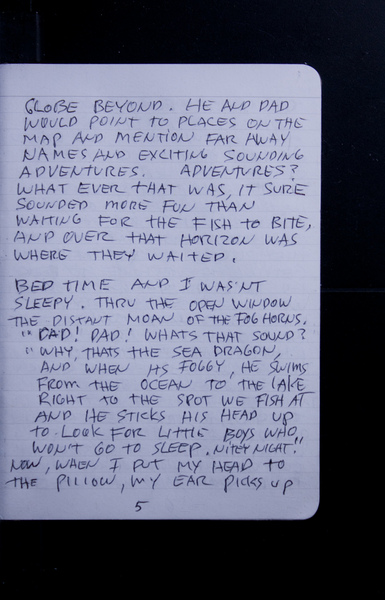 GLOBE BEYOND. HE AND DAD
WOULD POINT TO PLACES ON THE
MAP AND MENTION FAR AWAY
NAMES AND EXCITING SOUNDING
ADVENTURES. ADVENTURES?
WHAT EVER THAT WAS, IT SURE
SOUNDED MORE FUN THAN
WAITING FOR THE FISH TO BITE,
AND OVER THAT HORIZON WAS
WHERE THEY WAITED.
BED TIME AND I WAS'NT
SLEEPY. THRU THE OPEN WINDOW
THE DISTANT MOAN OF THE FOG HORNS.
"DAD! DAD! WHATS THAT SOUND?
"WHY, THATS THE SEA DRAGON,
AND WHEN ITS FOGGY, HE SWIMS
FROM THE OCEAN TO THE LAKE
RIGHT TO THE SPOT WE FISH AT
AND HE STICKS HIS HEAD UP
TO LOOK FOR LITTLE BOYS WHO
WON'T GO TO SLEEP. NITEY NIGHT!"
NOW, WHEN I PUT MY HEAD TO
THE PILLOW, MY EAR PICKS UP
5